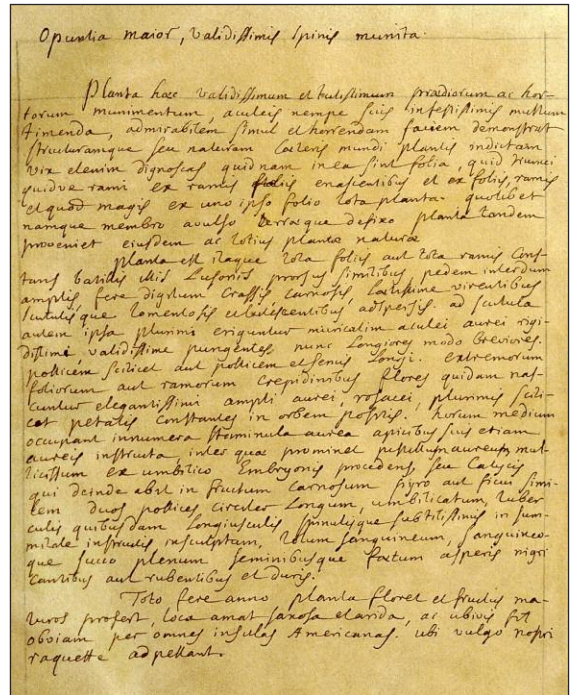 Opuntia maior, validissimis spinis munita.
Planta hæc validissimum et tutissimum prædiorum ac hor-
torum munimentum, aculeis nempe suis infestissimis multum
timenda, admirabilem simul et horrendam faciem demonstrat
structuramque seu naturam cæteris mundi plantis indictam
vix etenim dignoscas quidnam in ea sint folia, quid trunci
quidve rami ex ramis foliis enascentibus et ex foliis ramis
et quod magis ex uno ipso folio tota planta. quolibet
namque membro avulso terræque defixo planta tandem
proveniet eiusdem ac totius plantæ naturæ
planta est itaque tota foliis aut tota ramis Cons-
tans batillis illis Lusoriis prorsus similibus pedem interdum
amplis, fere digitum Crassis carnosis, lætissime virentibus
scutulisque tomentosis et adspersis. ad scutula
autem ipsa plurimi eriguntur muricatim aculei aurei rigi-
dissimi, validissime pungentes, nunc Longiores modo breviores.
pollicem scilicet aut pollicem et semis Longi. extremorum
foliorum aut ramorum Crepidinibus flores quidam nas-
cuntur elegantissimi ampli aurei, rosacei, plurimis scili-
cet petalis constantes in orbem positis. horum medium
occupant innumera staminula aurea apicibus suis etiam
aureis instructa, inter quæ prominet pistillum aureum mul-
ticussum ex umbilico Embryonis procedens seu Calycis
qui deinde abit in fructum carnosum pyro aut ficui simi-
lem duos pollices circiter Longum, umbilicatum, tuber
culis quibusdam Longiusculis spinulisque subtilissimis in sum-
mitate instructis insculptam, totum sanguineum, sanguineo-
que succo plenum seminibusque fœtum asperis nigri
cantibus aut rubentibus et duris.
Toto fere anno planta floret et fructus ma-
turos profert, loca amat saxosa et arida, ac ubivis fit
obviam per omnes insulas Americanas. ubi vulgo nostri
raquette adpellant.